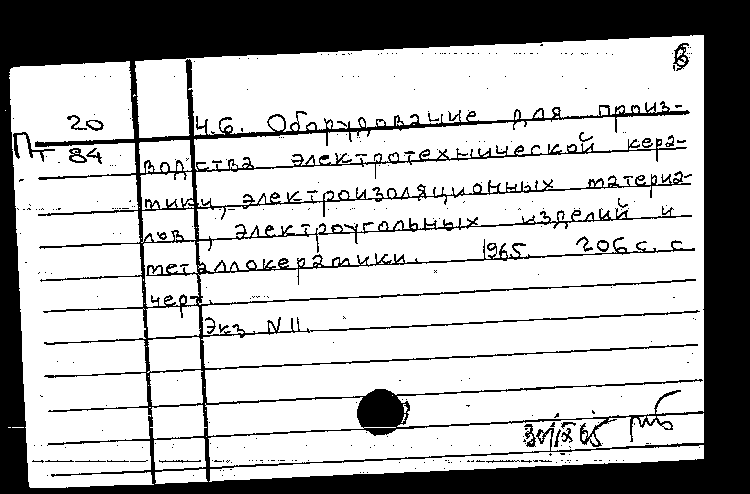 В
20
Ч.6. Оборудование для произ-
Пт 84
водства электротехнической кера-
мики, электроизоляционных материа-
лов, электроугольных изделий и
металлокерамики. 1965. 206 с. с
черт.
Экз. N 11.
30/IX 65